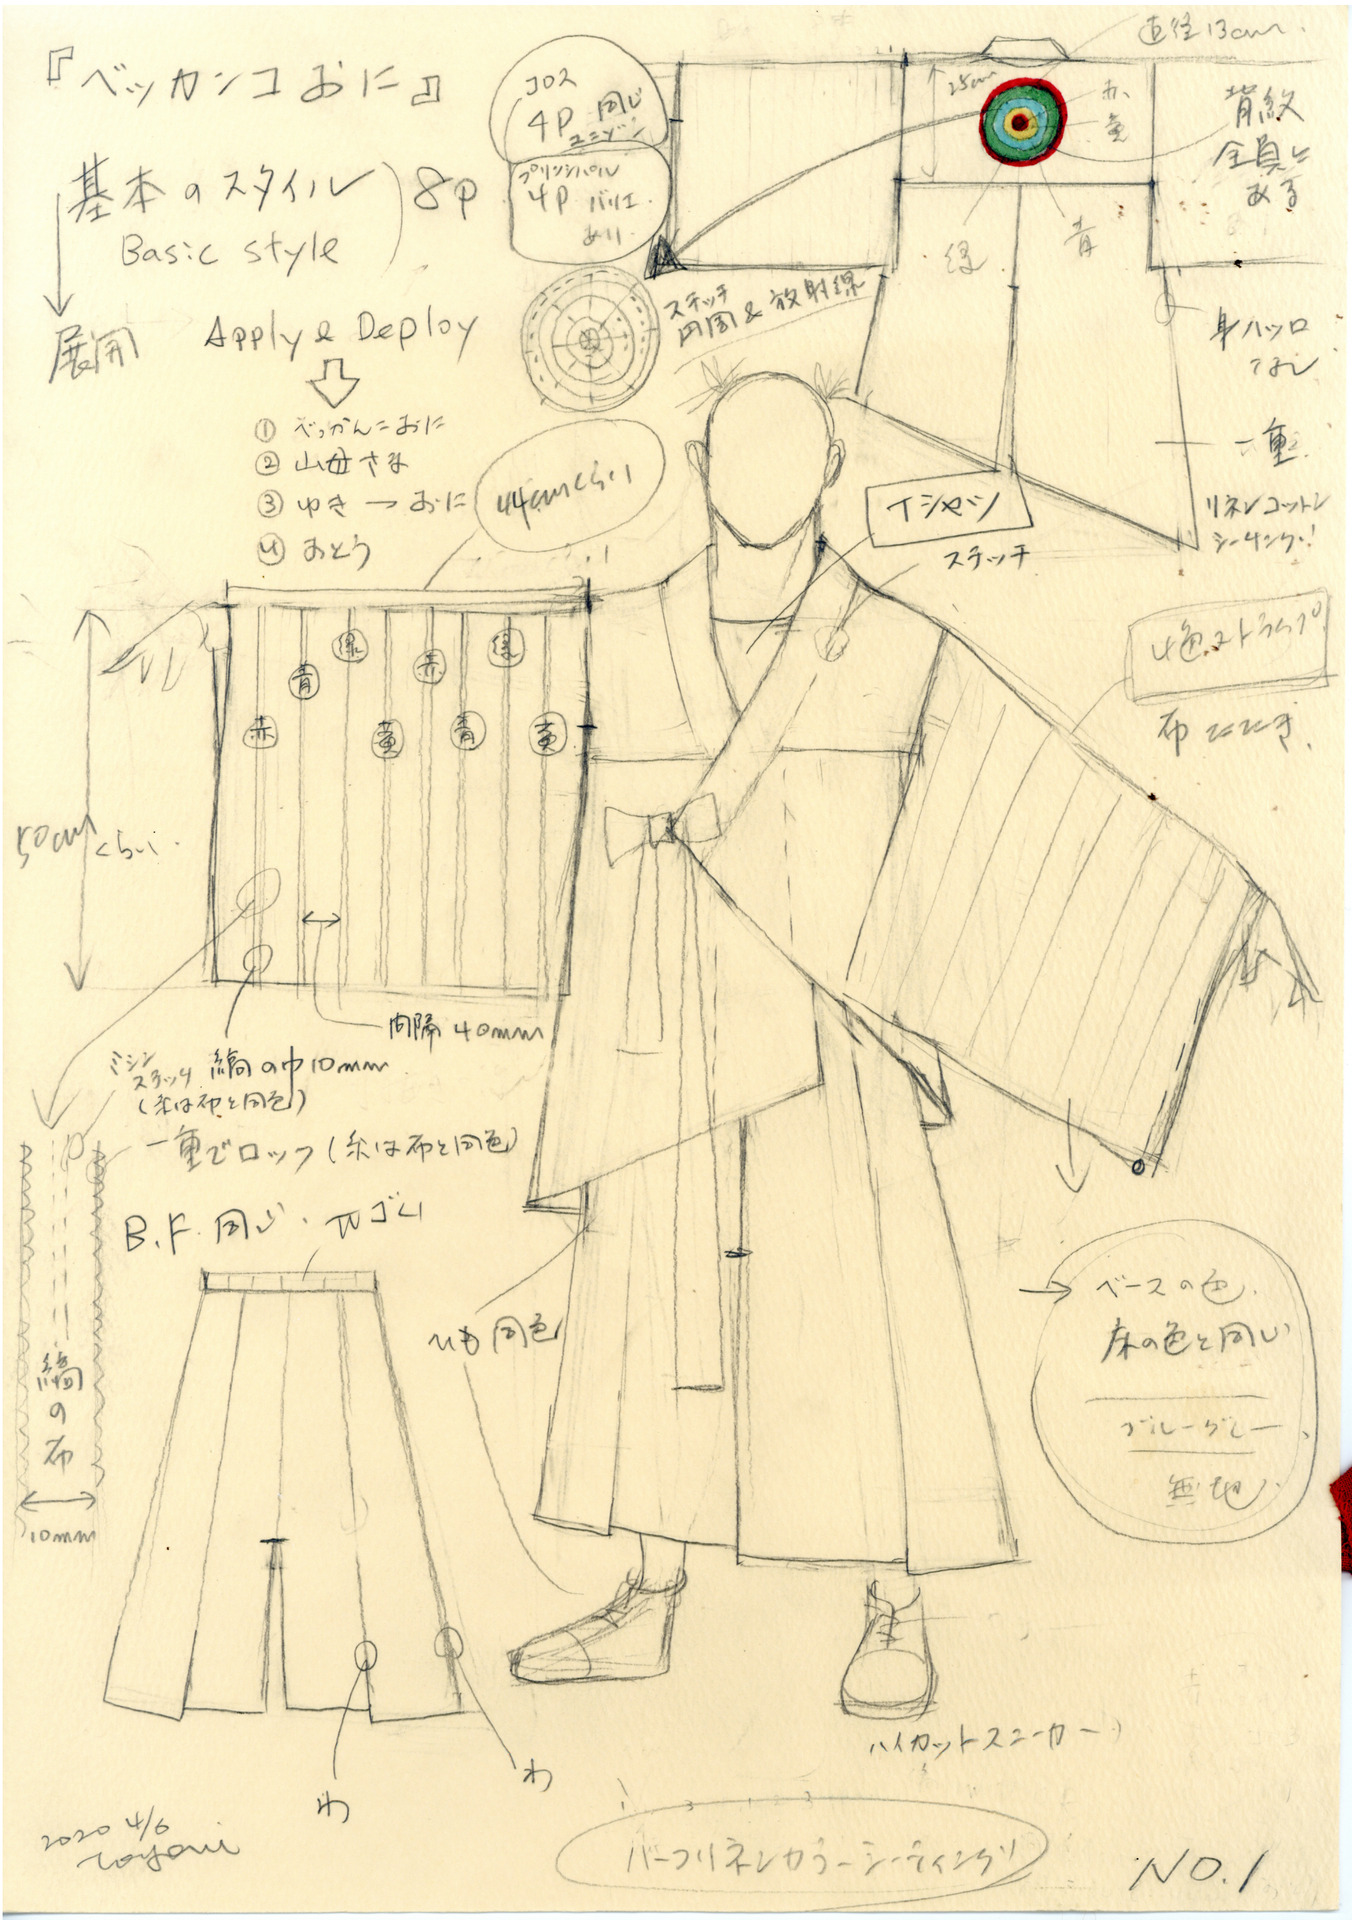 『ベッカンコおに』
基本のスタイル
Basic style
8P
コロス
4P 同じ
ユニゾン
プリンシパル
4P バリエ
あり
展開
Apply & Deploy
① べっかんこおに
② 山母さま
③ ゆき → おに
④ おとう
44cmくらい
ステッチ
円周&放射線
直径13cm
25cm
赤
黄
緑
青
背紋
全員に
ある
身ハッロ
なし
一重
リネンコットン
シーチング!
Tシャツ
ステッチ
4色ストラップ
布たたき
赤
青
緑
黄
赤
青
緑
黄
50cmくらい
間隔 40mm
ミシン
ステッチ
縞の巾10mm
(糸は布と同色)
一重でロック(糸は布と同色)
B.F. 同じ. 平ゴム
縞の布
10mm
ひも 同色
→ ベースの色
床の色と同じ
ブルーグレー
無地
わ
わ
ハイカットスニーカー
ハーフリネンカラーシーティング
2020 4/6
NO.1